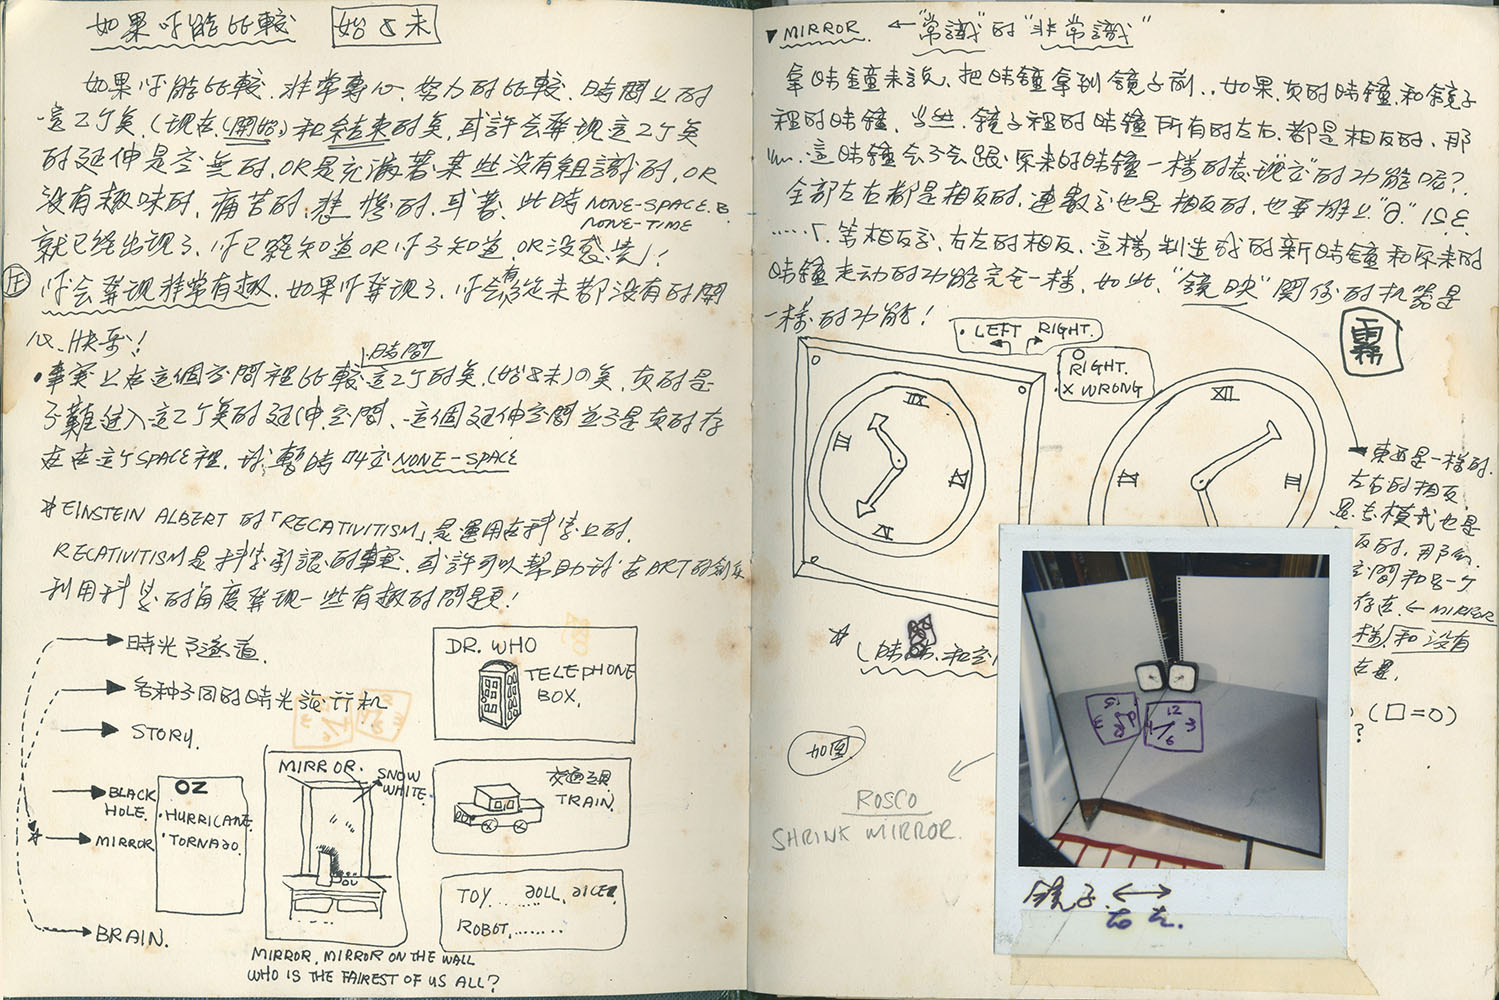 如果你能比較 始&末
如果你能比較、非常專心、努力的比較、時間上的
這2個点、(現在(開始))和結束的点、或許会發現這2个点
的延伸是空無的、OR是充滿著某些没有組識的、OR
没有趣味的、痛苦的、悲慘的、或著、此時 NONE-SPACE.
NONE-TIME
就已經出現了、你已經知道OR你不知道、OR没
你会發現非常有趣、如果你發現了、你会有從來都没有的開
心、快樂!
時間
•事實上在這個空間裡比較這2个的点、(始&末)の点、真的是
不難進入這2个点的延伸空間、這個延伸空間並不是真的存
在在這个SPACE裡、我暫時叫它 NONE-SPACE
*EINSTEIN ALBERT 的「RECATIVITISM」是運用在科学上的.
RECATIVITISM是科学承認的事實、或許可以幫助我在ART的創
利用科学的角度發現一些有趣的問題!
時光隧道.
各种不同的時光旅行机
STORY.
BLACK HOLE.
MIRROR
BRAIN.
OZ
•HURRICANE.
•TORNADO.
MIRROR.
SNOW WHITE.
MIRROR, MIRROR ON THE WALL
WHO IS THE FAIREST OF US ALL?
DR. WHO
TELEPHONE BOX.
交通工具
TRAIN.
TOY..... DOLL, DICER
ROBOT........
▼MIRROR. ← "常識"的"非常識"
拿時鐘來說、把時鐘拿到鏡子前..如果真的時鐘和鏡子
裡的時鐘、当然.鏡子裡的時鐘所有的左右.都是相反的、那
這時鐘会不会跟原來的時鐘一樣的表現它的功能呢?
全部左右都是相反的、連數字也是相反的、也要
等相反字、右左的相反、這樣制造成的新時鐘和原來的
時鐘走動的功能完全一樣、如此、"鏡映"關係的机器是
一樣的功能!
• LEFT RIGHT.
O RIGHT.
X WRONG
霧
東西是一樣的.
左右的相反
模式也是
反的、那
空間和另一个
存在. ← MIRROR
樣/和没有
(□=0)
?
如図
ROSCO
SHRINK MIRROR.
12
3
6
鏡子. ↔
右 左.